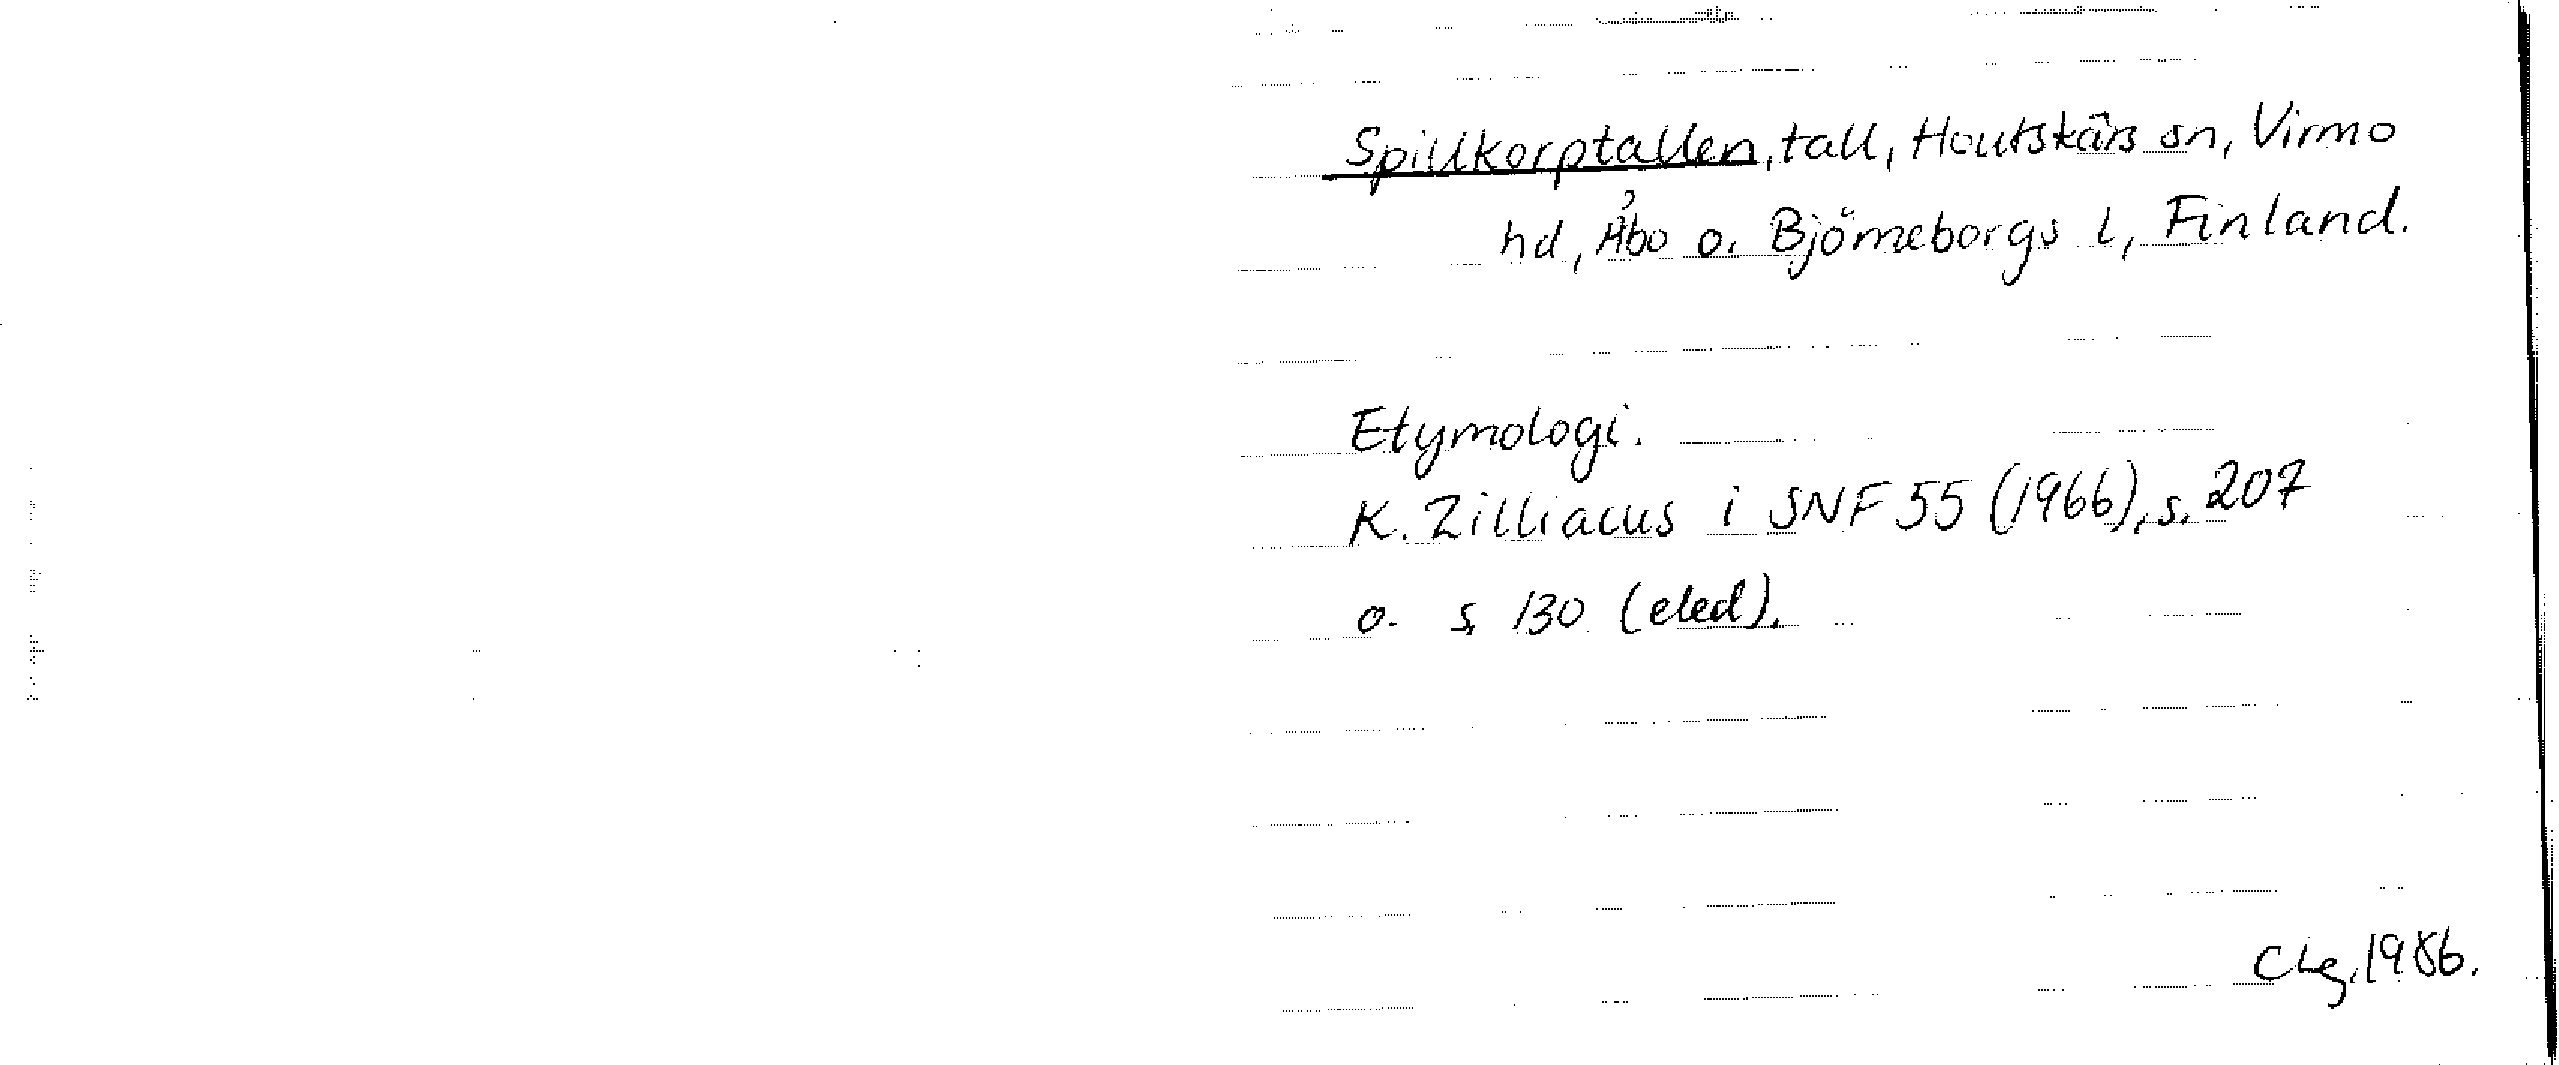 Spillkorptallen, tall, Houtskärs sn, Virmo
hd, Åbo o. Björneborgs l, Finland.
Etymologi.
K. Zilliacus i SNF 55 (1966), s. 207
o. s 130 (eled).
CLg. 1986.